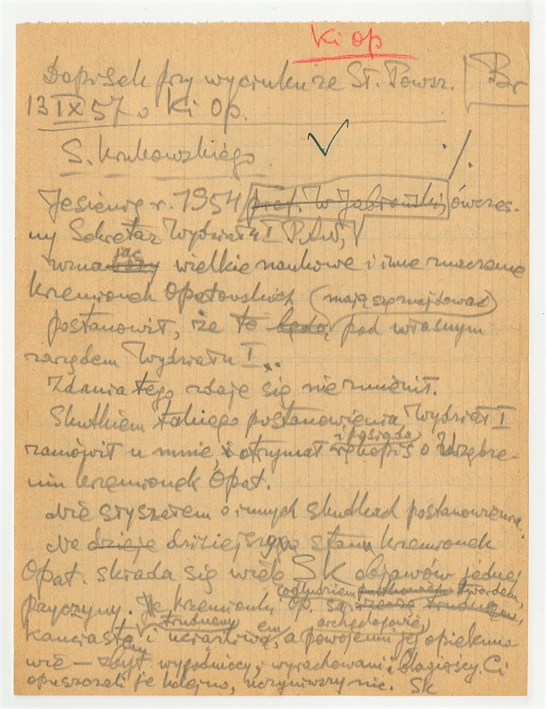 Ki Op
Dopisek przy wycinku ze St. Powsz. Br
13 IX 57 o Ki Op.
S. Krukowskiego
Jesienią r. 1954 prof. W Jabłoński, ówczes-
ny Sekretarz Wydziału I PAN,
uznając wielkie naukowe i inne znaczenie
krzemionek Opatowskich (mają się znajdować)
postanowił, że te będą pod własnym
zarządem Wydziału I.
Zdania tego zdaje się nie zmienił.
Skutkiem takiego postanowienia Wydział I
zamówił u mnie, i otrzymał i posiada rękopis o Urządze-
niu krzemionek Opat.
Nie słyszałem o innych skutkach postanowienia.
Na dzieje dzisiejszy stan krzemionek
Opat. składa się wiele SK objawów jednej
przyczyny. Te krzemionki Op. są
kanciaste i uciążliwe, a powojenni jej opiekuno-
wie — zbyt wygodniccy, wyrachowani i blagierscy. Ci
opuszczali je kolejno, uczyniwszy nic. SK